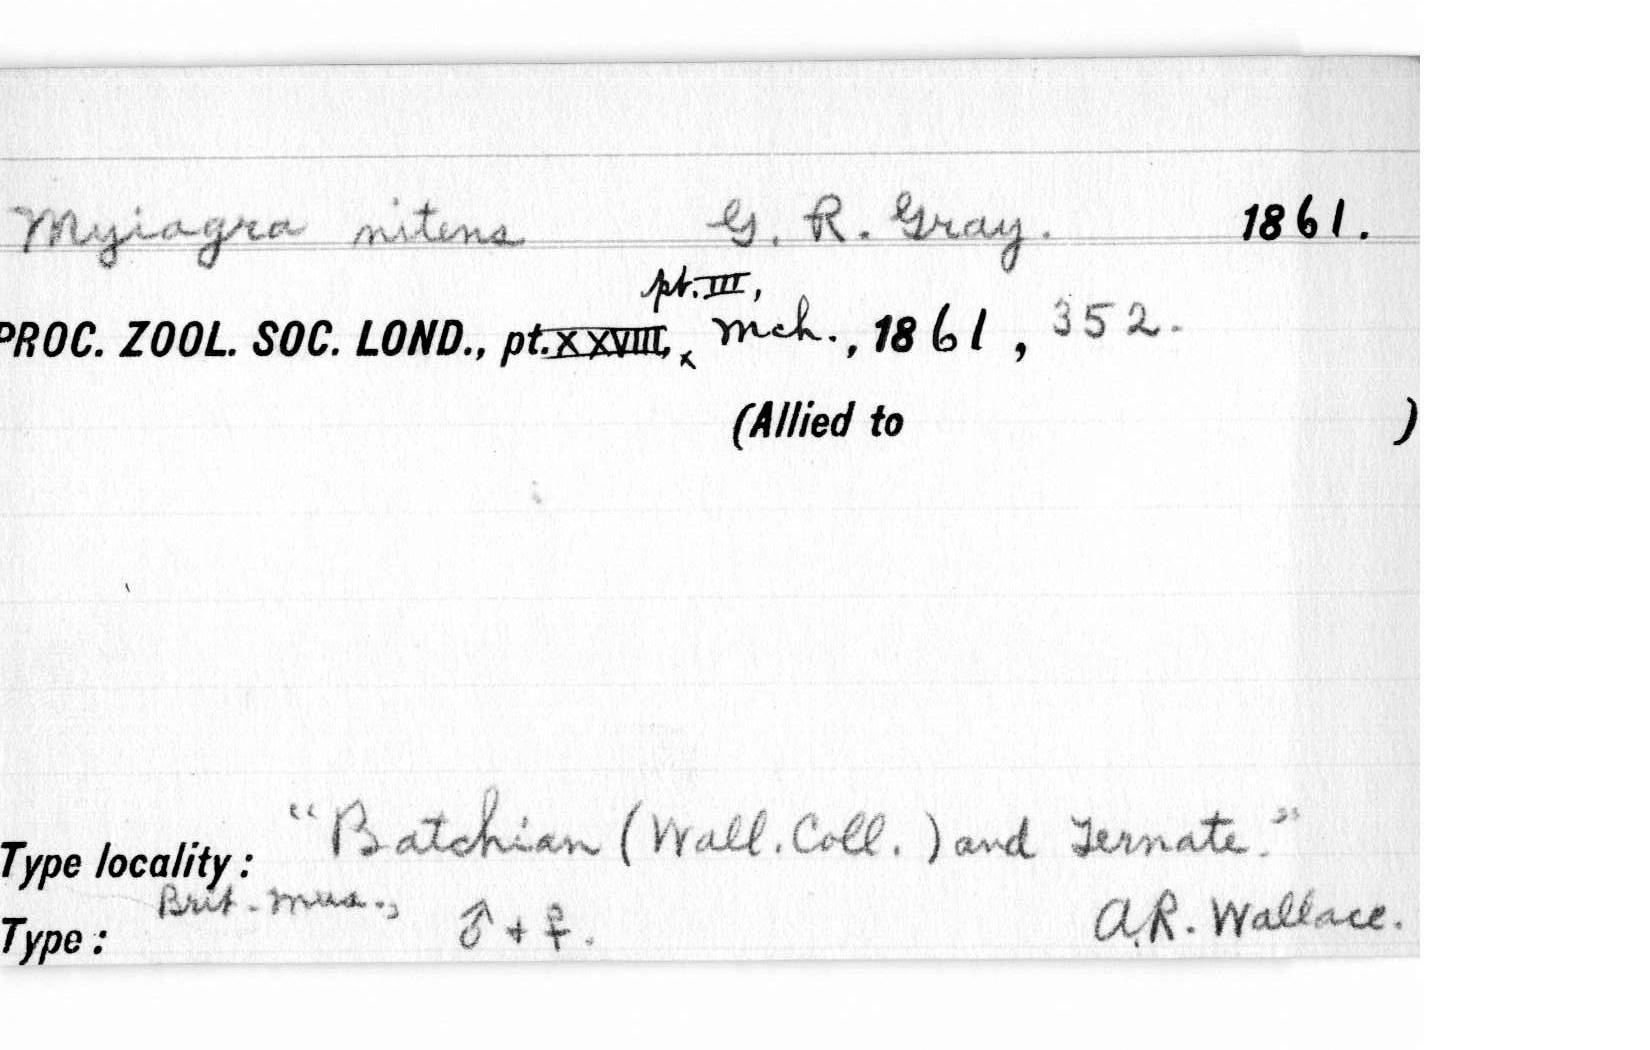 Myiagra nitens G. R. Gray. 1861.
pt. III,
PROC. ZOOL. SOC. LOND., pt. XXVIII, x Mch., 1861, 352.
(Allied to )
"Batchian (Wall. Coll.) and Ternate."
Type locality:
Brit. Mus., ♂ + ♀. A.R. Wallace.
Type: